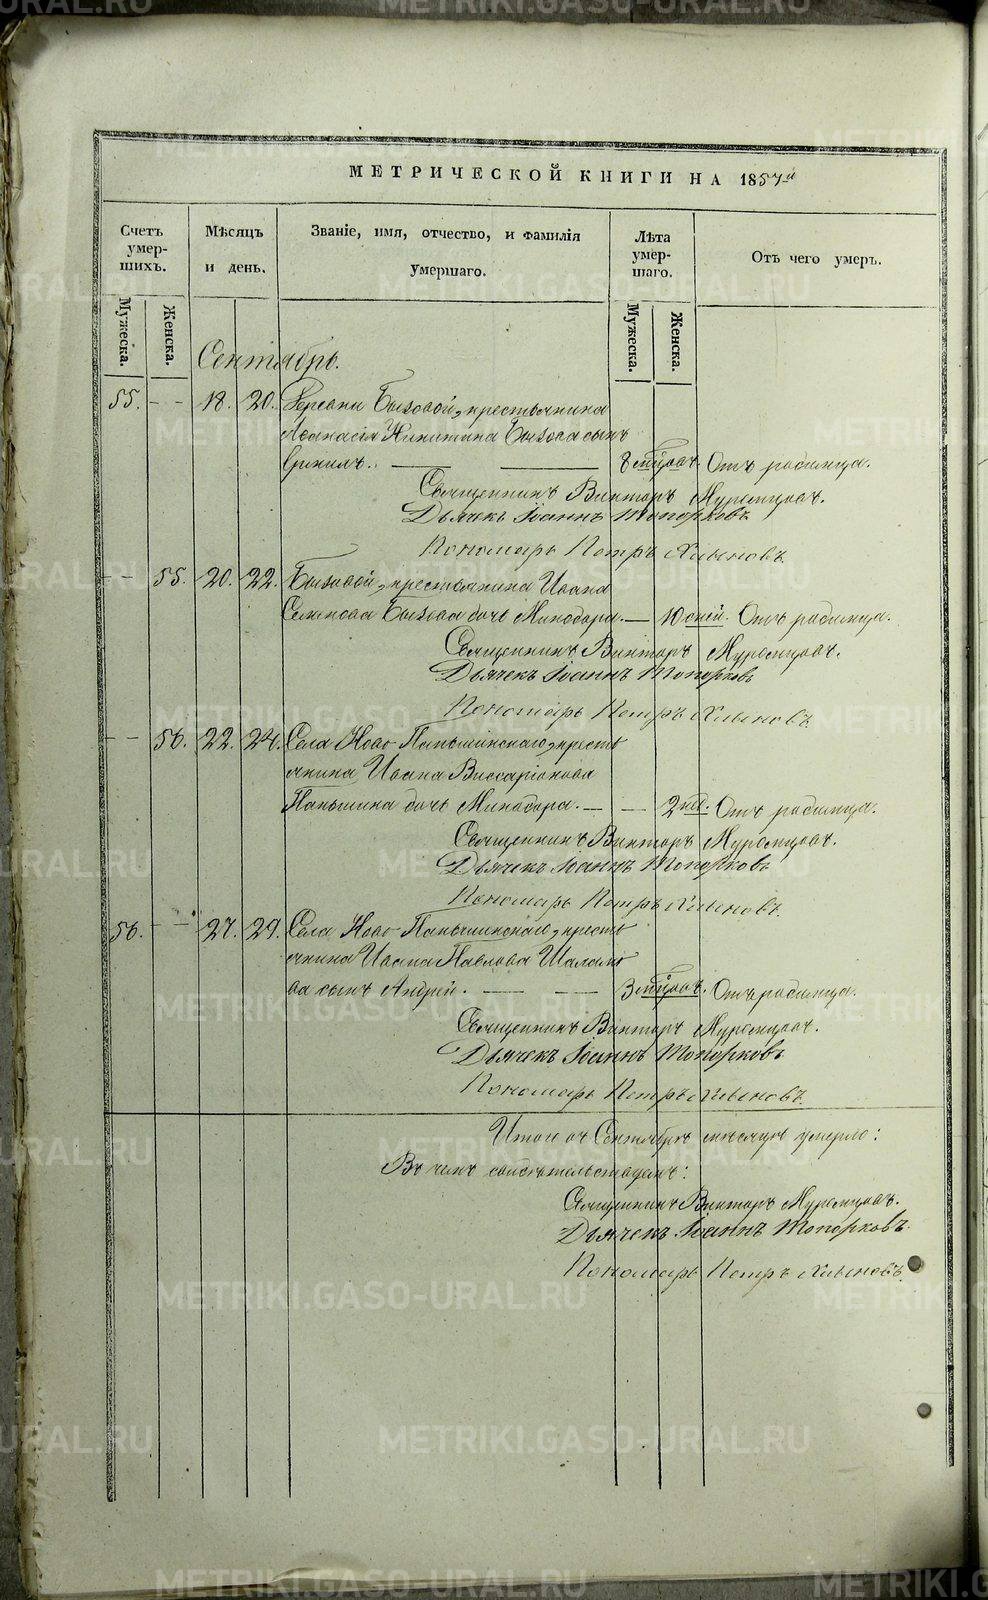 МЕТРИЧЕСКОЙ КНИГИ НА 1857й
Счетъ умер-шихъ.
Мѣсяцъ и день.
Званіе, имя, отчество, и фамилія умершаго.
Лѣта умер-шаго.
Отъ чего умеръ.
Мужеска.
Женска.
Мужеска.
Женска.
Сентябрь.
55. — — 18. 20. Бызовой, крестьянина
Афанасія Никитина Бызова сынъ
8 мѣсяц. Отъ родимца.
Священникъ Викторъ Муромцовъ.
Дьячекъ Іоаннъ Топорковъ
Пономарь Петръ Хлыновъ.
— — 55. 20. 22. Бызовой, крестьянина Ивана
Семенова Бызова дочь Минодора. — 10 дней. Отъ родимца.
Священникъ Викторъ Муромцовъ.
Дьячекъ Іоаннъ Топорковъ
Пономарь Петръ Хлыновъ
— — 56. 22. 24. Села Ново-Паньшинскаго, кресть
янина Ивана Виссаріонова
Паньшина дочь Минодора. — — 2 нед. Отъ родимца.
Священникъ Викторъ Муромцовъ.
Дьячекъ Іоаннъ Топорковъ
Пономарь Петръ Хлыновъ.
56. — — 27. 29. Села Ново-Паньшинскаго, кресть
янина Ивана Павлова Шаламо
ва сынъ Андрей. — — 3 мѣсяц. Отъ родимца.
Священникъ Викторъ Муромцовъ.
Дьячекъ Іоаннъ Топорковъ
Пономарь Петръ Хлыновъ.
Итого въ Сентябрѣ мѣсяцѣ умерло:
Въ чемъ свидѣтельствуемъ:
Священникъ Викторъ Муромцовъ.
Дьячекъ Іоаннъ Топорковъ.
Пономарь Петръ Хлыновъ.
METRIKI.GASO-URAL.RU